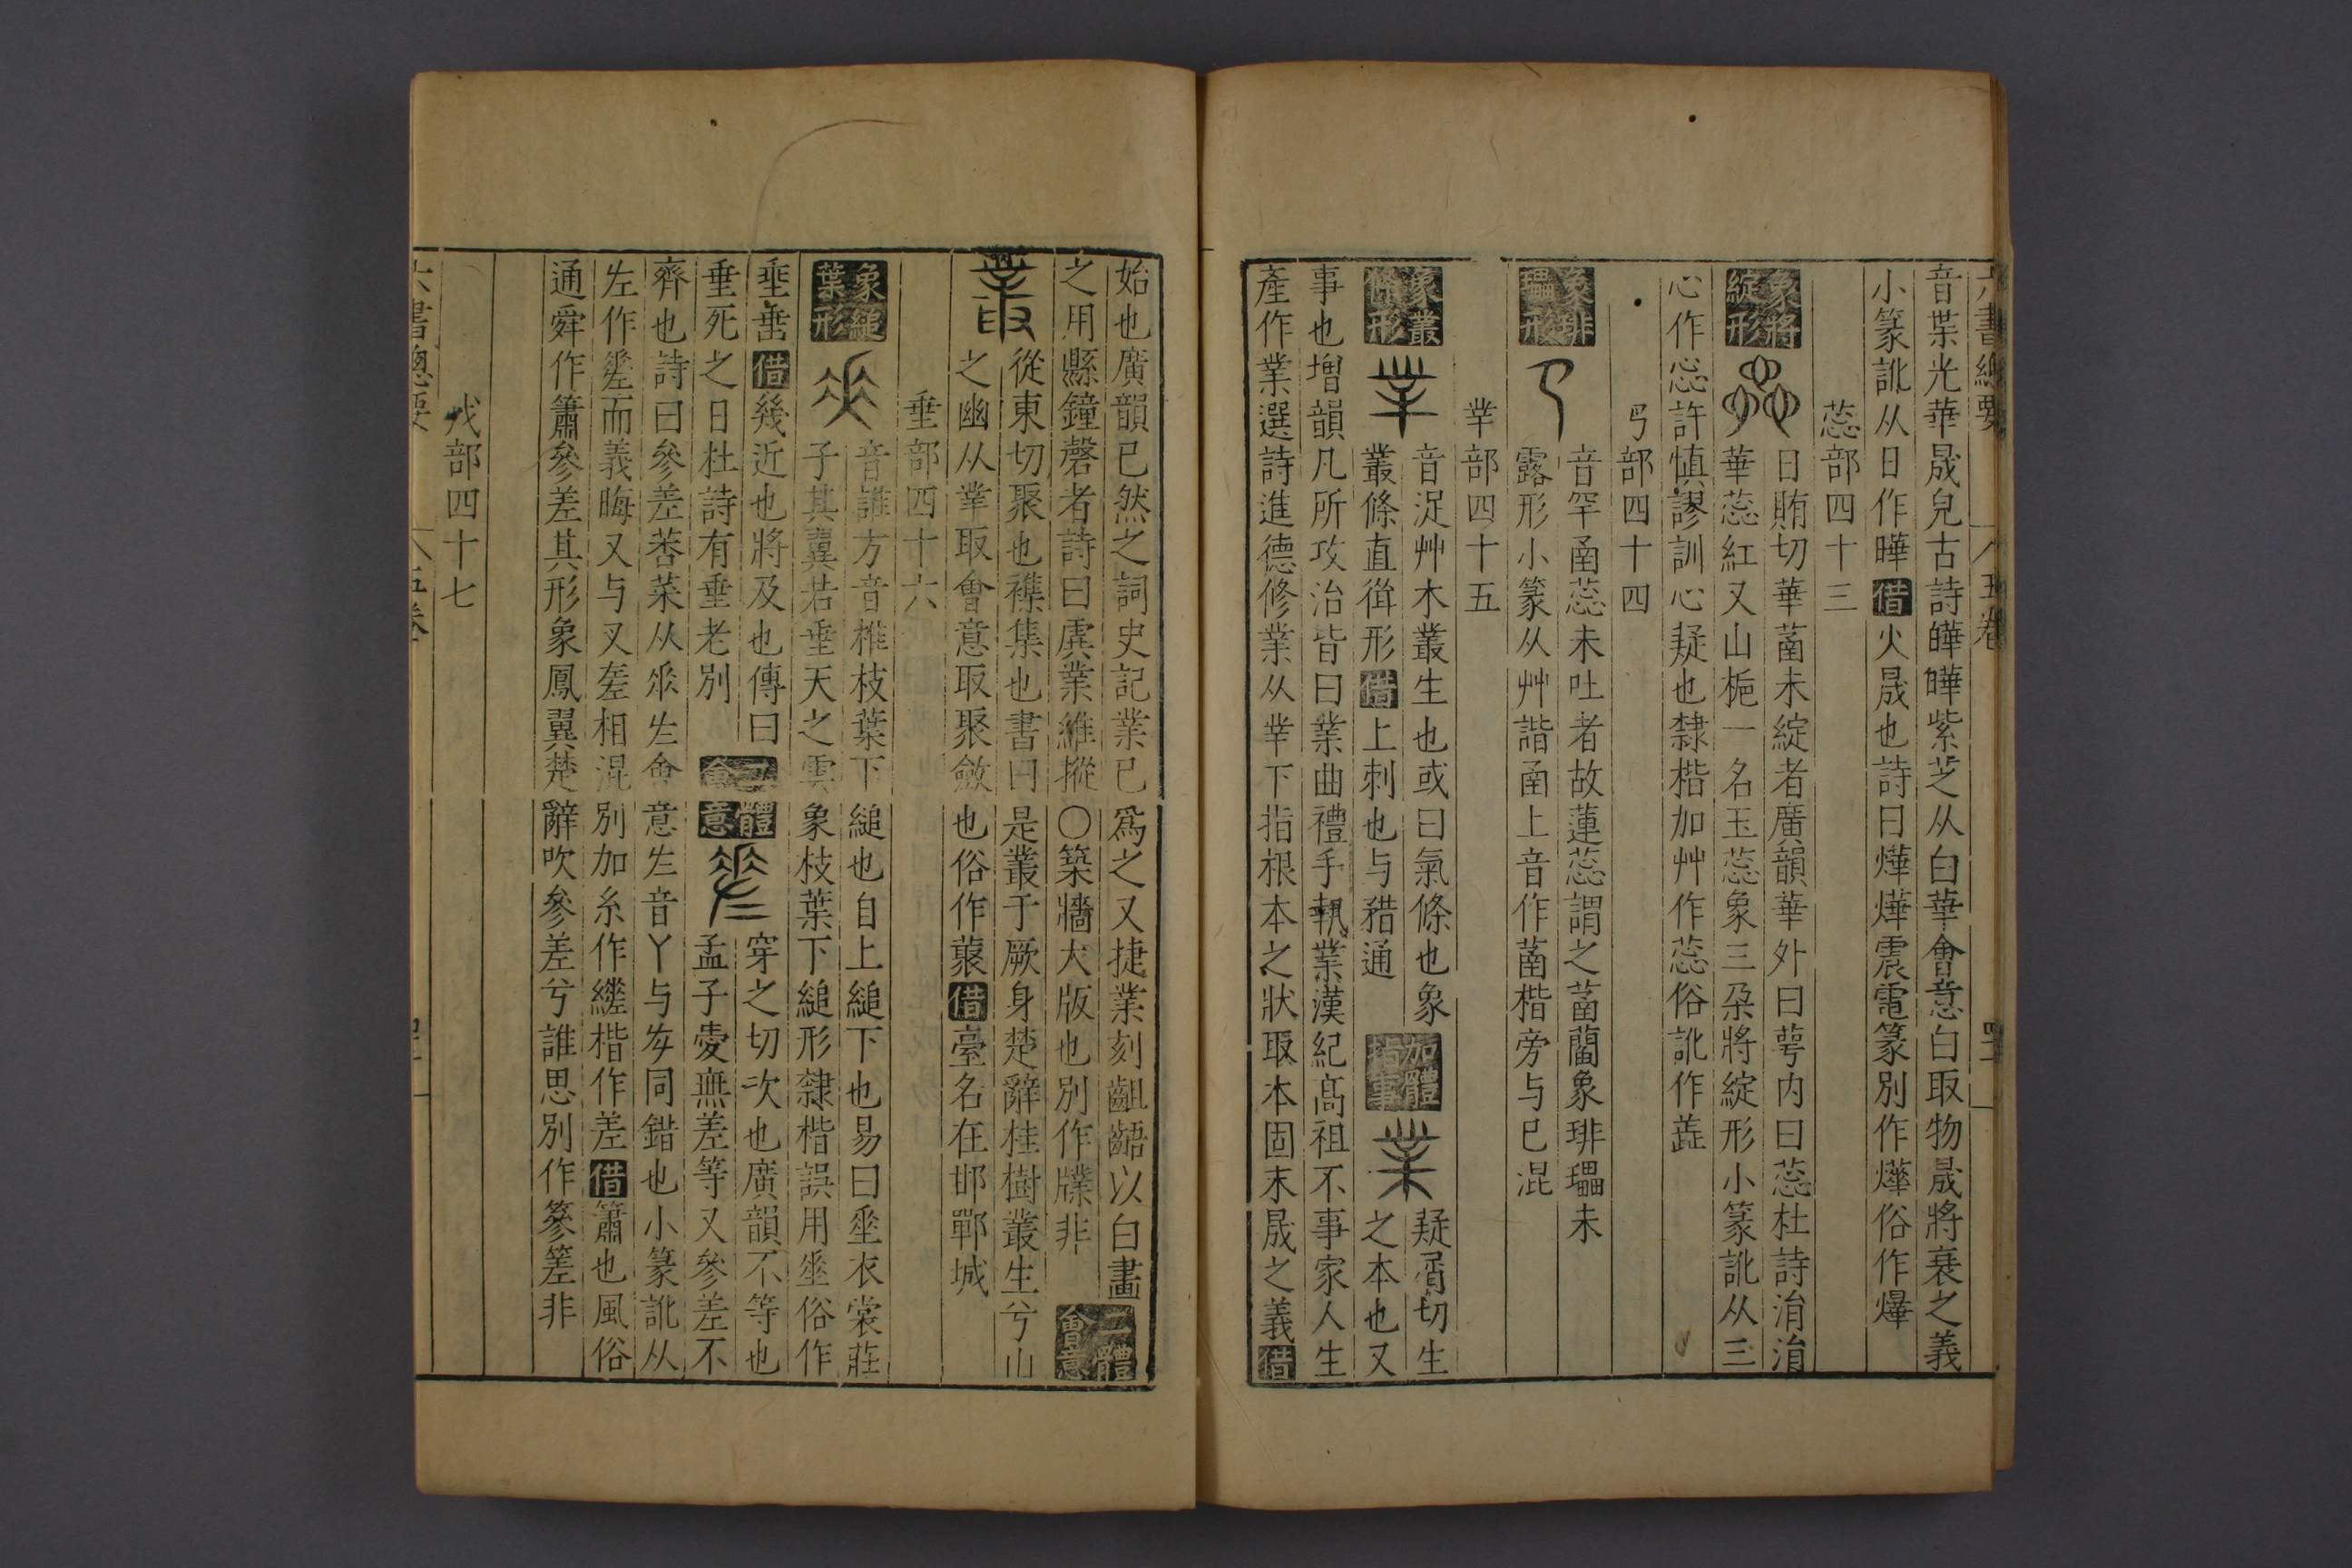 六書總要 五卷
音㬼光華晟皃古詩皣皣紫芝从白華會意白取物晟將衰之義
小篆訛从日作曄借火晟也詩曰爗爗震電篆別作爗俗作燁
蕊部四十三
象將綻形 日賄切華菡未綻者廣韻華外曰萼內曰蕊杜詩涓涓
華蕊紅又山梔一名玉蕊象三朶將綻形小篆訛从三
心作惢許慎謬訓心疑也隸楷加艸作蕊俗訛作蘃
𢎘部四十四
音罕𢎘蕊未吐者故蓮蕊謂之菡藺象琲瓃未
象琲瓃形
露形小篆从艸諧𢎘上音作菡楷旁与已混
丵部四十五
象叢條形 音浞艸木叢生也或曰氣條也象
叢條直聳形借上刺也与䅵通
加體指事 業 疑屑切生
之本也又
事也增韻凡所攻治皆曰業曲禮手執業漢紀高祖不事家人生
產作業選詩進德修業从丵下指根本之狀取本固末晟之義借
始也廣韻已然之詞史記業已爲之又捷業刻齟齬以白畫
之用縣鐘磬者詩曰虡業維摐〇築牆大版也別作牒非 二體會意
叢 從東切聚也襍集也書曰是叢于厥身楚辭桂樹叢生兮山
之幽从丵取會意取聚斂也俗作藂借臺名在邯鄲城
垂部四十六
象縋葉形 音誰方音椎枝葉下縋也自上縋下也易曰垂衣裳莊
子其翼若垂天之雲象枝葉下縋形隸楷誤用垂俗作
垂埀借幾近也將及也傳曰
垂死之日杜詩有垂老別
二體會意 穿之切次也廣韻不等也
孟子愛無差等又參差不
齊也詩曰參差荇菜从𠂹𠂇會意𠂇音丫与左同錯也小篆訛从
左作𢀩而義晦又与叉差相混別加糸作縒楷作差借簫也風俗
通舜作簫參差其形象鳳翼楚辭吹參差兮誰思別作篸䈟非
戎部四十七
六書總要 五卷